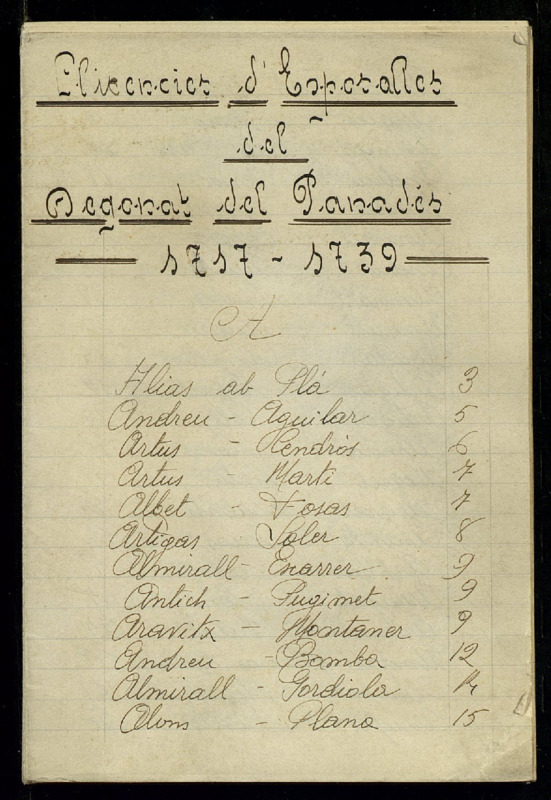 Llicencies d'Esposalles
del
Deganat del Panadés
1717 - 1739
A
Alias ab Plá 3
Andreu - Aguilar 5
Artus - Hendrós 6
Artus - Marti 7
Albet - Fosas 7
Artigas Soler 8
Almirall - Escarrer 9
Antich - Pugimet 9
Aravitx - Montaner 9
Andreu - Bomba 12
Almirall - Gordiola 14
Alons - Plana 15